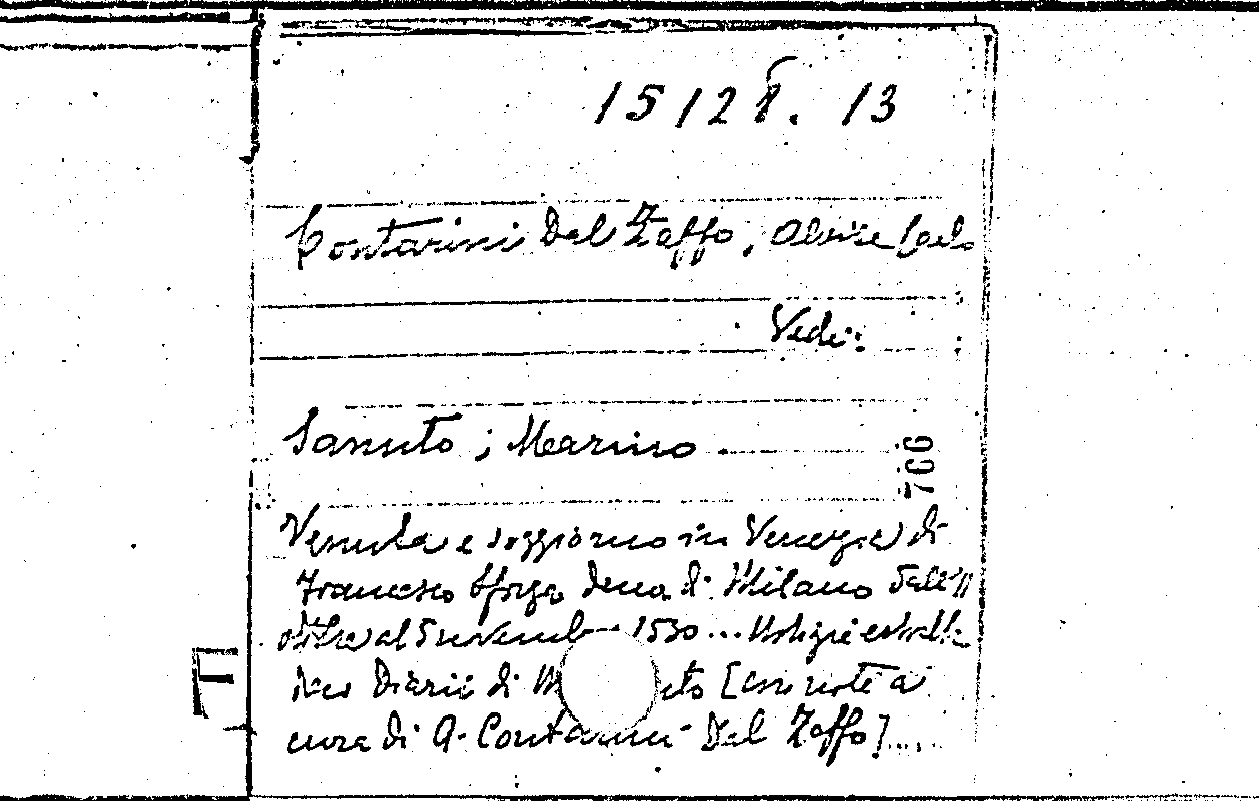 15128. 13
Contarini Dal Zaffo, Alvise Carlo
Vedi:
Sanuto, Marino
766
Venuta e soggiorno in Venezia di
Francesco Sforza duca di Milano dall'11
ottobre al 5 novembre 1530... Notizie estratte
dai Diarii di M uto [con note a
cura di A. Contarini Dal Zaffo]....